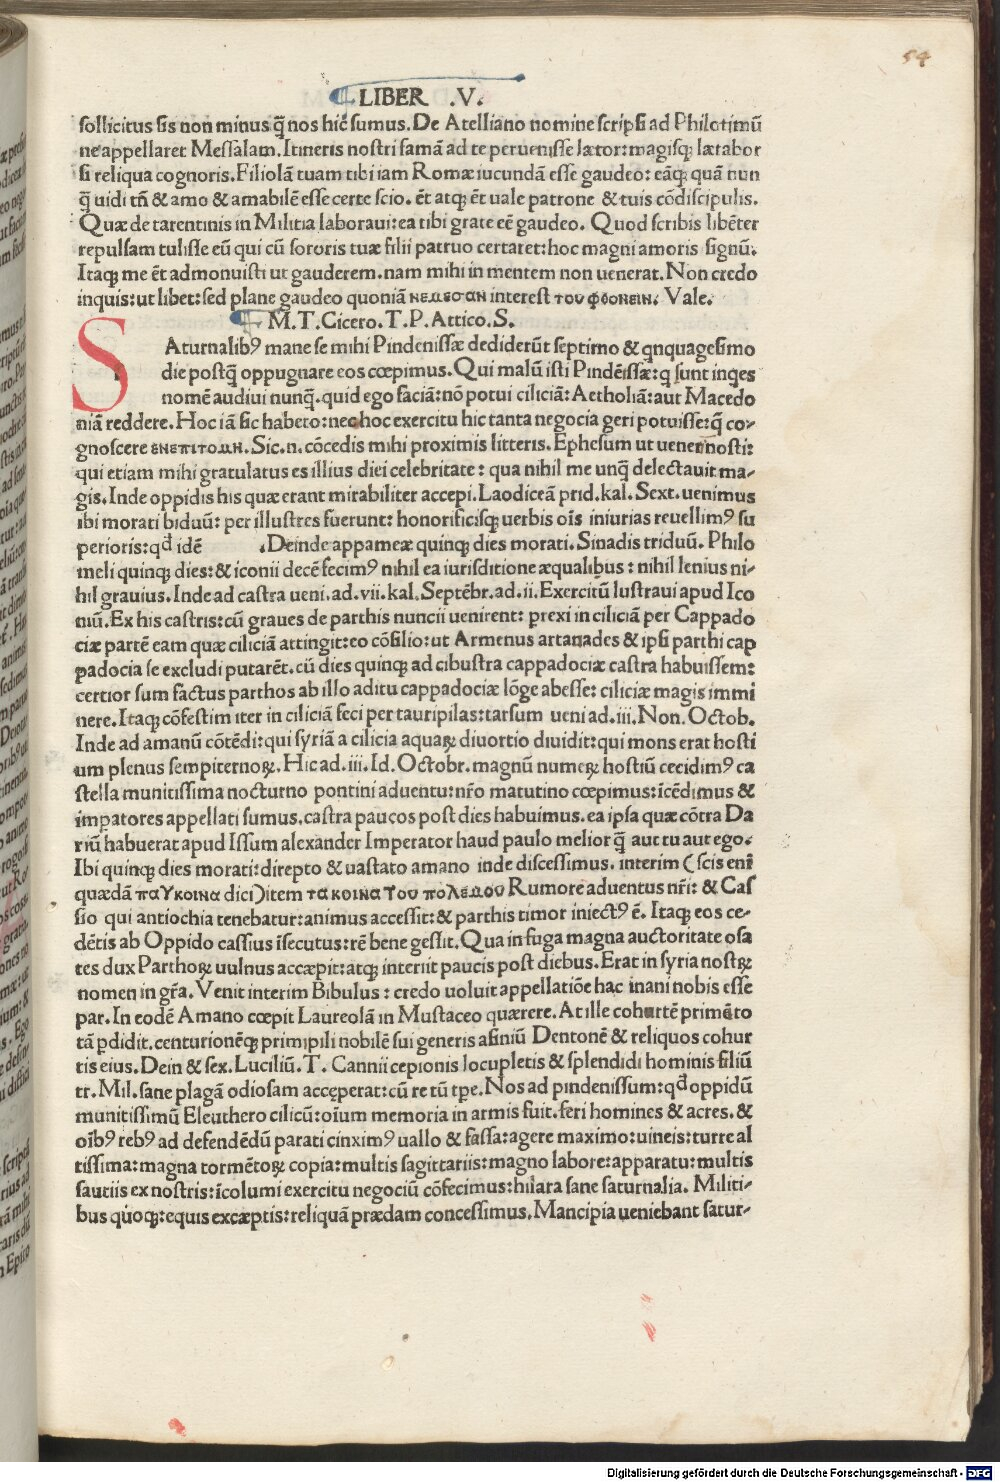 54
LIBER .V.
sollicitus sis non minus q̄ nos hic sumus. De Atelliano nomine scripsi ad Philotimū
ne appellaret Messalam. Itineris nostri famā ad te peruenisse lætor: magisq; lætabor
si reliqua cognoris. Filiolā tuam tibi iam Romæ iucundā esse gaudeo: eāq; quā nun
q̄ uidi tn̄ & amo & amabilē esse certe scio. ēt atq; ēt uale patrone & tuis cōdiscipulis.
Quæ de tarentinis in Militia laboraui: ea tibi grate eē gaudeo. Quod scribis libēter
repulsam tulisse eū qui cū sororis tuæ filii patruo certaret: hoc magni amoris signū.
Itaq; me ēt admonuisti ut gauderem. nam mihi in mentem non uenerat. Non credo
inquis: ut libet: sed plane gaudeo quoniā ΝΕΜΕΣΑΝ interest ΤΟΥ ΦΘΟΝΕΙΝ. Vale.
M. T. Cicero. T. P. Attico. S.
SAturnalibꝰ mane se mihi Pindenissæ dediderūt septimo & qnquagesimo
die postq̄ oppugnare eos cœpimus. Qui malū isti Pindēissæ: q sunt inqes
nomē audiui nunq̄. quid ego faciā: nō potui ciliciā: Aetholiā: aut Macedo
niā reddere. Hoc iā sic habeto: nec hoc exercitu hic tanta negocia geri potuisse: q̄ co-
gnoscere ΕΝΕΠΙΤΟΜΗ. Sic. n. cōcedis mihi proximis litteris. Ephesum ut uenerī nosti:
qui etiam mihi gratulatus es illius diei celebritate: qua nihil me unq̄ delectauit ma-
gis. Inde oppidis his quæ erant mirabiliter accepi. Laodiceā prid. kal. Sext. uenimus
ibi morati biduū: per illustres fuerunt: honorificisq; uerbis oīs iniurias reuellimꝰ su
perioris: qd idē .Deinde appameæ quinq; dies morati. Sinadis triduū. Philo
meli quinq; dies: & iconii decē fecimꝰ nihil ea iurisditione æqualibus: nihil lenius ni-
hil grauius. Inde ad castra ueni. ad. vii. kal. Septēbr. ad. ii. Exercitū lustraui apud Ico
niū. Ex his castris: cū graues de parthis nuncii uenirent: prexi in ciliciā per Cappado
ciæ partē eam quæ ciliciā attingit: eo cōsilio: ut Armenus artanades & ipsi parthi cap
padocia se excludi putarēt. cū dies quinq; ad cibustra cappadociæ castra habuissem:
certior sum factus parthos ab illo aditu cappadociæ lōge abesse: ciliciæ magis immi
nere. Itaq; cōfestim iter in ciliciā feci per tauripilas: tarsum ueni ad. iii. Non. Octob.
Inde ad amanū cōtēdi: qui syriā a cilicia aquaꝝ diuortio diuidit: qui mons erat hosti
um plenus sempiternoꝝ. Hic ad. iii. Id. Octobr. magnū numeꝝ hostiū cecidimꝰ ca
stella munitissima nocturno pontini aduentu: nr̄o matutino cœpimus: īcēdimus &
impatores appellati sumus. castra paucos post dies habuimus. ea ipsa quæ cōtra Da
riū habuerat apud Issum alexander Imperator haud paulo melior q̄ aut tu aut ego.
Ibi quinq; dies morati: direpto & uastato amano inde discessimus. interim (scis enī
quædā ΠΑΥΚΟΙΝΑ dici) item ΤΑ ΚΟΙΝΑ ΤΟΥ ΠΟΛΕΜΟΥ Rumore aduentus nr̄i: & Cas
sio qui antiochia tenebatur: animus accessit: & parthis timor iniectꝰ ē. Itaq; eos ce-
dētis ab Oppido cassius īsecutus: rē bene gessit. Qua in fuga magna auctoritate osa
tes dux Parthoꝝ uulnus accæpit: atq; interiit paucis post diebus. Erat in syria nostꝝ
nomen in gr̄a. Venit interim Bibulus: credo uoluit appellatiōe hac inani nobis esse
par. In eodē Amano cœpit Laureolā in Mustaceo quærere. At ille cohortē primā to
tā pdidit. centurionēq; primipili nobilē sui generis asiniū Dentonē & reliquos cohor
tis eius. Dein & sex. Luciliū. T. Cannii cepionis locupletis & splendidi hominis filiū
tr. Mil. sane plagā odiosam acceperat: cū re tū tpe. Nos ad pindenissum: qd oppidū
munitissimū Eleuthero cilicū: oīum memoria in armis fuit. feri homines & acres. &
oībꝰ rebꝰ ad defendēdū parati cinximꝰ uallo & fassa: agere maximo: uineis: turre al
tissima: magna tormētoꝝ copia: multis sagittariis: magno labore: apparatu: multis
sautiis ex nostris: īcolumi exercitu negociū cōfecimus: hilara sane saturnalia. Militi-
bus quoq: equis excæptis: reliquā prædam concessimus. Mancipia ueniebant satur-
Digitalisierung gefördert durch die Deutsche Forschungsgemeinschaft - DFG